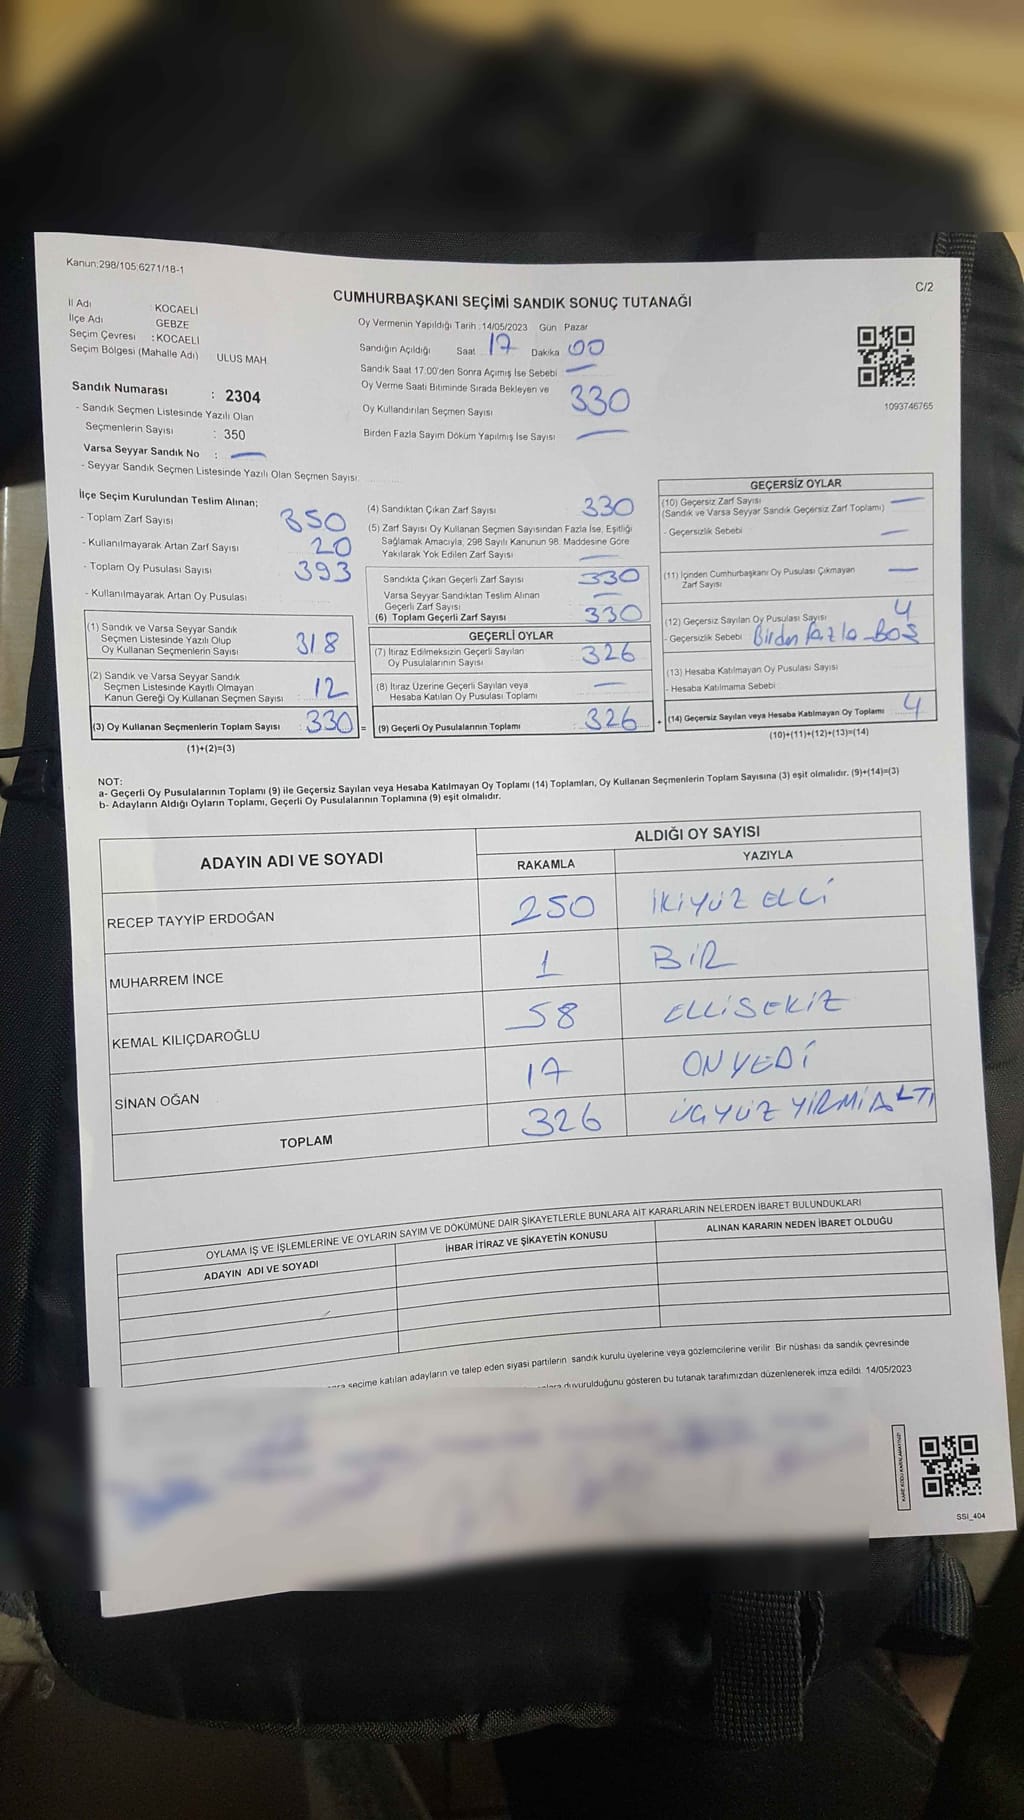 Kanun:298/105:6271/18-1
C/2
CUMHURBAŞKANI SEÇİMİ SANDIK SONUÇ TUTANAĞI
İl Adı : KOCAELİ
İlçe Adı GEBZE
Seçim Çevresi : KOCAELİ
Seçim Bölgesi (Mahalle Adı) ULUS MAH.
Sandık Numarası : 2304
- Sandık Seçmen Listesinde Yazılı Olan
Seçmenlerin Sayısı : 350
Varsa Seyyar Sandık No : —
- Seyyar Sandık Seçmen Listesinde Yazılı Olan Seçmen Sayısı:
Oy Vermenin Yapıldığı Tarih : 14/05/2023 Gün Pazar
Sandığın Açıldığı Saat 17 Dakika 00
Sandık Saat 17.00'den Sonra Açımış İse Sebebi —
Oy Verme Saati Bitiminde Sırada Bekleyen ve
Oy Kullandırılan Seçmen Sayısı 330
Birden Fazla Sayım Döküm Yapılmış İse Sayısı —
1093746765
İlçe Seçim Kurulundan Teslim Alınan;
- Toplam Zarf Sayısı 350
- Kullanılmayarak Artan Zarf Sayısı 20
- Toplam Oy Pusulası Sayısı 393
- Kullanılmayarak Artan Oy Pusulası
(1) Sandık ve Varsa Seyyar Sandık
Seçmen Listesinde Yazılı Olup
Oy Kullanan Seçmenlerin Sayısı 318
(2) Sandık ve Varsa Seyyar Sandık
Seçmen Listesinde Kayıtlı Olmayan
Kanun Gereği Oy Kullanan Seçmen Sayısı 12
(3) Oy Kullanan Seçmenlerin Toplam Sayısı 330 =
(1)+(2)=(3)
(4) Sandıktan Çıkan Zarf Sayısı 330
(5) Zarf Sayısı Oy Kullanan Seçmen Sayısından Fazla İse, Eşitliği
Sağlamak Amacıyla, 298 Sayılı Kanunun 98. Maddesine Göre
Yakılarak Yok Edilen Zarf Sayısı —
Sandıkta Çıkan Geçerli Zarf Sayısı 330
Varsa Seyyar Sandıktan Teslim Alınan
Geçerli Zarf Sayısı —
(6) Toplam Geçerli Zarf Sayısı 330
GEÇERLİ OYLAR
(7) İtiraz Edilmeksizin Geçerli Sayılan
Oy Pusulalarının Sayısı 326
(8) İtiraz Üzerine Geçerli Sayılan veya
Hesaba Katılan Oy Pusulası Toplamı —
(9) Geçerli Oy Pusulalarının Toplamı 326
GEÇERSİZ OYLAR
(10) Geçersiz Zarf Sayısı —
(Sandık ve Varsa Seyyar Sandık Geçersiz Zarf Toplamı)
- Geçersizlik Sebebi —
(11) İçinden Cumhurbaşkanı Oy Pusulası Çıkmayan
Zarf Sayısı —
(12) Geçersiz Sayılan Oy Pusulası Sayısı 4
- Geçersizlik Sebebi Birden fazla - BOŞ
(13) Hesaba Katılmayan Oy Pusulası Sayısı
- Hesaba Katılmama Sebebi
+ (14) Geçersiz Sayılan veya Hesaba Katılmayan Oy Toplamı 4
(10)+(11)+(12)+(13)=(14)
NOT:
a- Geçerli Oy Pusulalarının Toplamı (9) ile Geçersiz Sayılan veya Hesaba Katılmayan Oy Toplamı (14) Toplamları, Oy Kullanan Seçmenlerin Toplam Sayısına (3) eşit olmalıdır. (9)+(14)=(3)
b- Adayların Aldığı Oyların Toplamı, Geçerli Oy Pusulalarının Toplamına (9) eşit olmalıdır.
ADAYIN ADI VE SOYADI
ALDIĞI OY SAYISI
RAKAMLA YAZIYLA
RECEP TAYYİP ERDOĞAN 250 İKİYÜZ ELLİ
MUHARREM İNCE 1 BİR
KEMAL KILIÇDAROĞLU 58 ELLİSEKİZ
SİNAN OĞAN 17 ONYEDİ
TOPLAM 326 ÜÇYÜZ YİRMİALTI
OYLAMA İŞ VE İŞLEMLERİNE VE OYLARIN SAYIM VE DÖKÜMÜNE DAİR ŞİKAYETLERLE BUNLARA AİT KARARLARIN NELERDEN İBARET BULUNDUKLARI
ADAYIN ADI VE SOYADI İHBAR İTİRAZ VE ŞİKAYETİN KONUSU ALINAN KARARIN NEDEN İBARET OLDUĞU
seçime katılan adayların ve talep eden siyasi partilerin sandık kurulu üyelerine veya gözlemcilerine verilir. Bir nüshası da sandık çevresinde
duyurulduğunu gösteren bu tutanak tarafımızdan düzenlenerek imza edildi. 14/05/2023
SSI_404